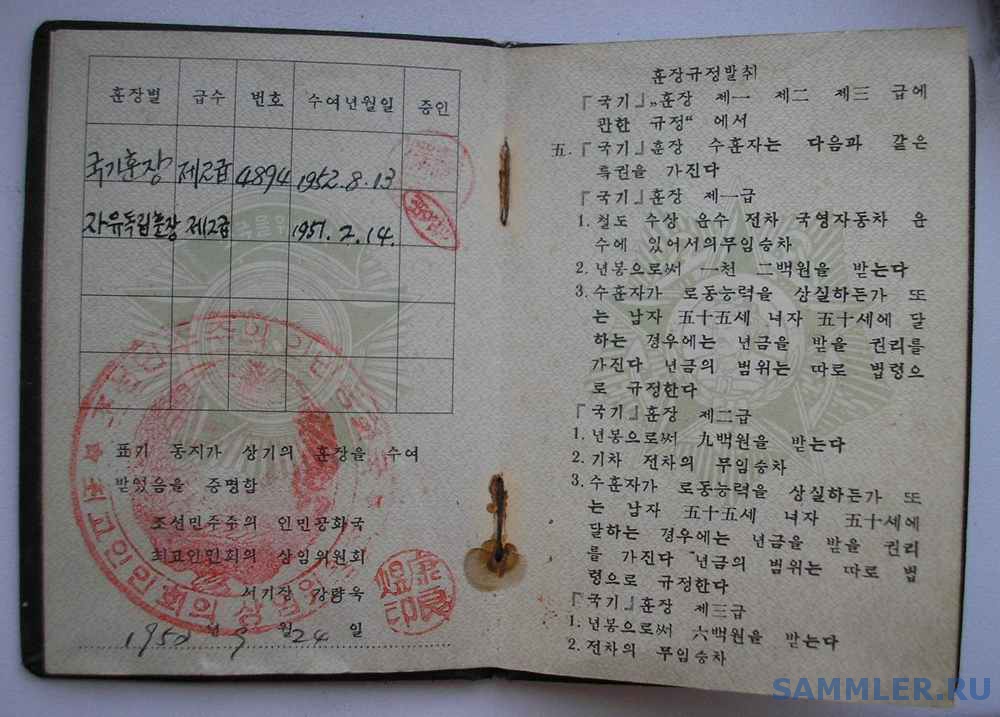 훈장별 급수 번호 수여년월일 증인
국기훈장 제2급 4894 1952.8.13
자유독립훈장 제2급 1951.2.14.
표기 동지가 상기의 훈장을 수여
받었음을 증명함
조선민주주의 인민공화국
최고인민회의 상임위원회
서기장 강량욱
년 9 월 24 일
康良煜印
훈장규정발취
『국기』„훈장 제一 제二 제三 급에
관한 규정“ 에서
五.『국기』훈장 수훈자는 다음과 같은
특권을 가진다
『국기』훈장 제一급
1. 철도 수상 운수 전차 국영자동차 운
수에 있어서의무임승차
2. 년봉으로써 一천 二백원을 받는다
3. 수훈자가 로동능력을 상실하든가 또
는 남자 五十五세 녀자 五十세에 달
하는 경우에는 년금을 받을 권리를
가진다 년금의 범위는 따로 법령으
로 규정한다
『국기』훈장 제二급
1. 년봉으로써 九백원을 받는다
2. 기차 전차의 무임승차
3. 수훈자가 로동능력을 상실하든가 또
는 남자 五十五세 녀자 五十세에
달하는 경우에는 년금을 받을 권리
를 가진다 년금의 범위는 따로 법
령으로 규정한다
『국기』훈장 제三급
1. 년봉으로써 六백원을 받는다
2. 전차의 무임승차
SAMMLER.RU